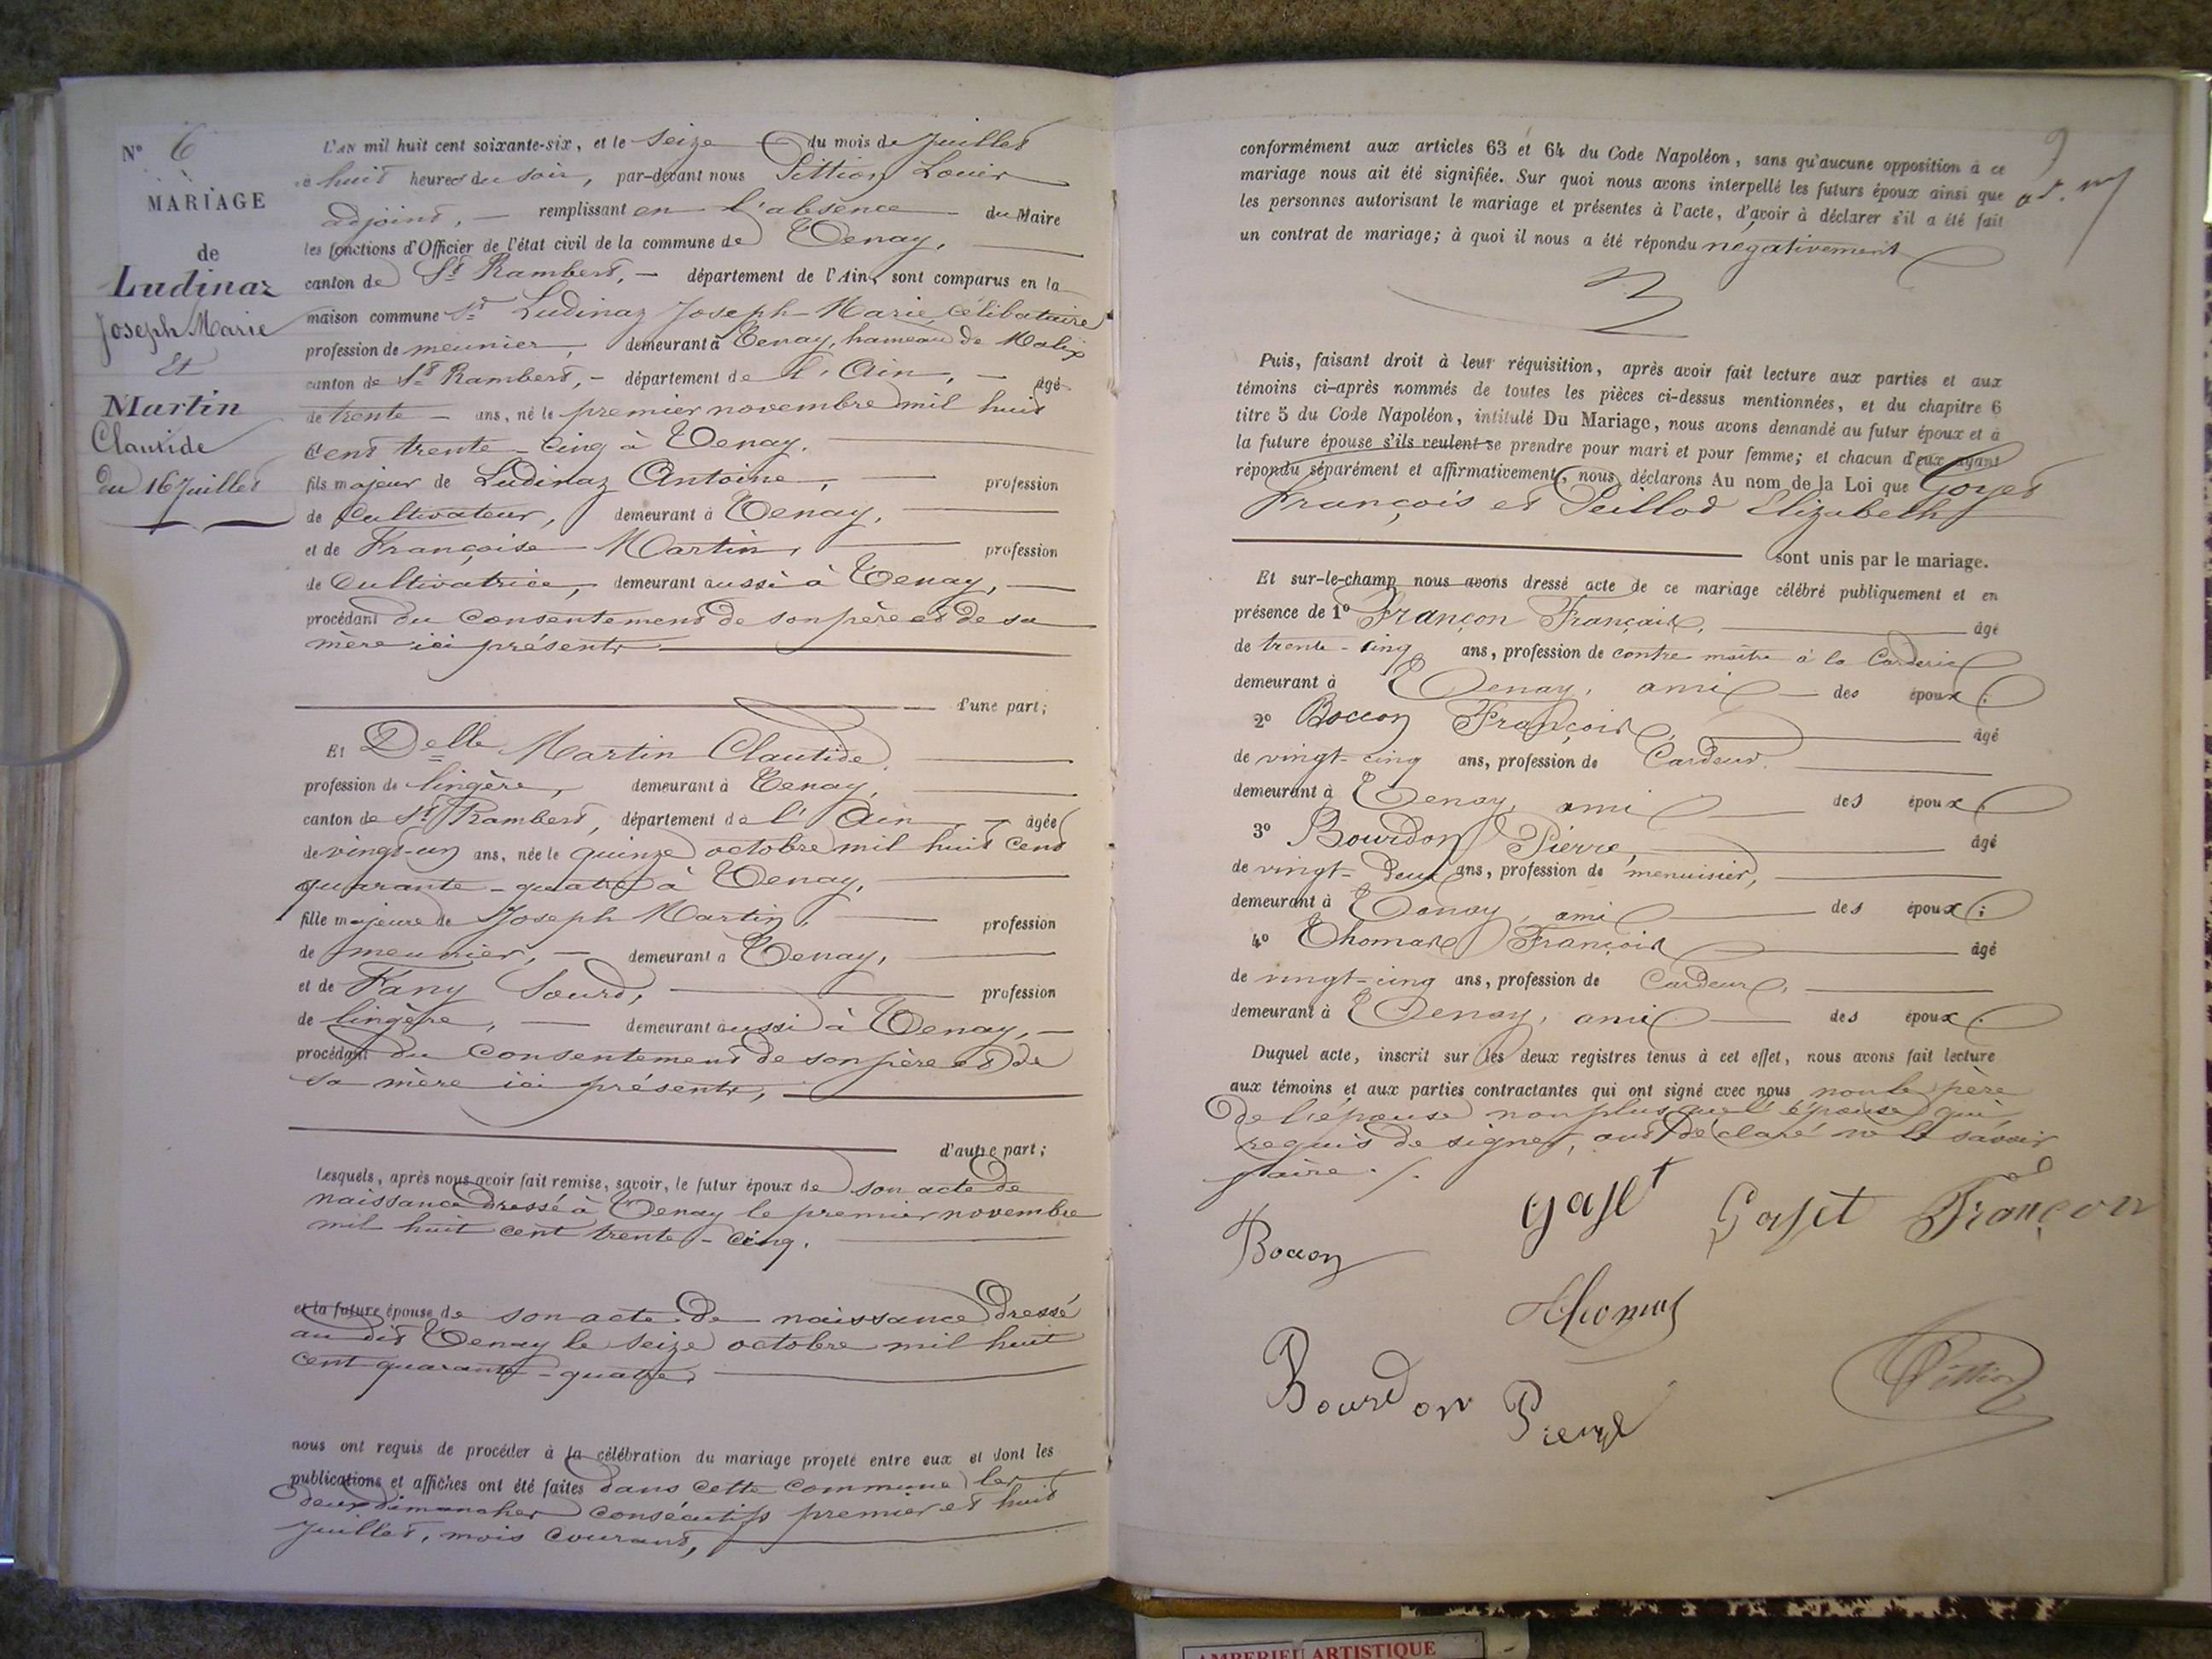 N° 6
MARIAGE
de
Ludinaz
Joseph Marie
Et
Martin
Clautide
du 16 Juillet
L'AN mil huit cent soixante-six, et le seize du mois de Juillet
à huit heures du soir, par-devant nous Pittion Louis
adjoint, remplissant en l'absence du Maire
les fonctions d'Officier de l'état civil de la commune de Tenay,
canton de St Rambert, département de l'Ain, sont comparus en la
maison commune Sr Ludinaz Joseph-Marie, célibataire
profession de meunier, demeurant à Tenay, hameau de Malix
canton de St Rambert, département de l'Ain, âgé
de trente ans, né le premier novembre mil huit
cent trente-cinq à Tenay.
fils majeur de Ludinaz Antoine, profession
de Cultivateur, demeurant à Tenay,
et de Françoise Martin, profession
de Cultivatrice, demeurant aussi à Tenay,
procédant du consentement de son père et de sa
mère ici présents
d'une part;
Et Delle Martin Clautide,
profession de lingère, demeurant à Tenay,
canton de St Rambert, département de l'Ain, âgée
de vingt-un ans, née le quinze octobre mil huit cent
quarante-quatre à Tenay,
fille majeure de Joseph Martin, profession
de meunier, demeurant à Tenay,
et de Fany Sourd, profession
de lingère, demeurant aussi à Tenay,
procédant du consentement de son père et de
sa mère ici présents,
d'autre part;
Lesquels, après nous avoir fait remise, savoir, le futur époux de son acte de
naissance dressé à Tenay le premier novembre
mil huit cent trente-cinq.
et la future épouse de son acte de naissance dressé
au dit Tenay le seize octobre mil huit
cent quarante-quatre
nous ont requis de procéder à la célébration du mariage projeté entre eux et dont les
publications et affiches ont été faites dans cette commune les
deux dimanches consécutifs premier et huit
Juillet, mois courant,
9
conformément aux articles 63 et 64 du Code Napoléon, sans qu'aucune opposition à ce
mariage nous ait été signifiée. Sur quoi nous avons interpellé les futurs époux ainsi que
les personnes autorisant le mariage et présentes à l'acte, d'avoir à déclarer s'il a été fait
un contrat de mariage; à quoi il nous a été répondu négativement
Puis, faisant droit à leur réquisition, après avoir fait lecture aux parties et aux
témoins ci-après nommés de toutes les pièces ci-dessus mentionnées, et du chapitre 6
titre 5 du Code Napoléon, intitulé Du Mariage, nous avons demandé au futur époux et à
la future épouse s'ils veulent se prendre pour mari et pour femme; et chacun d'eux ayant
répondu séparément et affirmativement, nous déclarons Au nom de la Loi que Goyet
François et Peillod Elizabeth
sont unis par le mariage.
Et sur-le-champ nous avons dressé acte de ce mariage célébré publiquement et en
présence de 1° Françon Français, âgé
de trente-cinq ans, profession de contre maître à la Carderie
demeurant à Tenay, ami des époux;
2° Boccon François, âgé
de vingt-cinq ans, profession de Cardeur.
demeurant à Tenay, ami des époux;
3° Bourdon Pierre, âgé
de vingt-deux ans, profession de menuisier,
demeurant à Tenay, ami des époux;
4° Thomas François âgé
de vingt-cinq ans, profession de Cardeur,
demeurant à Tenay, ami des époux.
Duquel acte, inscrit sur les deux registres tenus à cet effet, nous avons fait lecture
aux témoins et aux parties contractantes qui ont signé avec nous non le père
de l'épouse non plus que l'épouse qui
requis de signer, ont déclaré ne le savoir
faire.
Françon
Boccon
Thomas
Bourdon Pierre
Pittion
AMBERIEU ARTISTIQUE